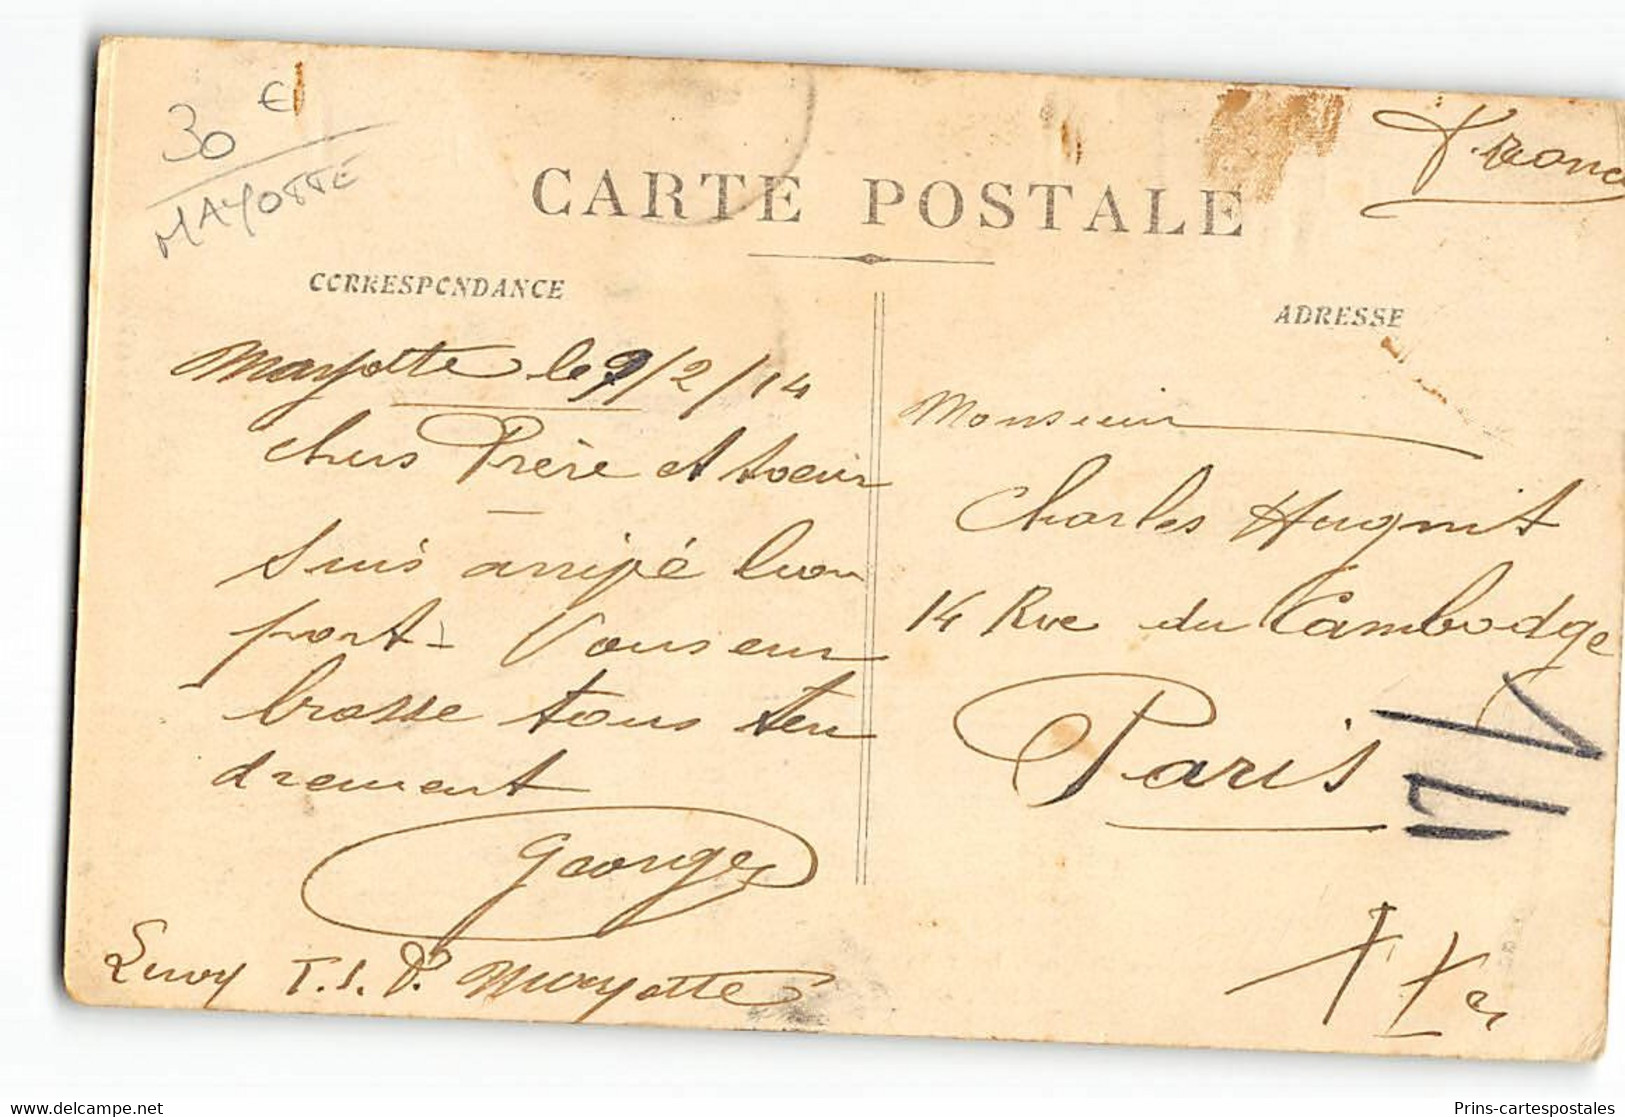 30 €
MAYOTTE
France
CARTE POSTALE
CORRESPONDANCE
ADRESSE
Mayotte le 9/2/14
chers Frère et soeur
suis arrivé bon
port - Vous em
brasse tous ten
drement
Georges
T.S.F. Mayotte
Monsieur
Charles Hugnit
14 Rue du Cambodge
Paris
Prins-cartespostales